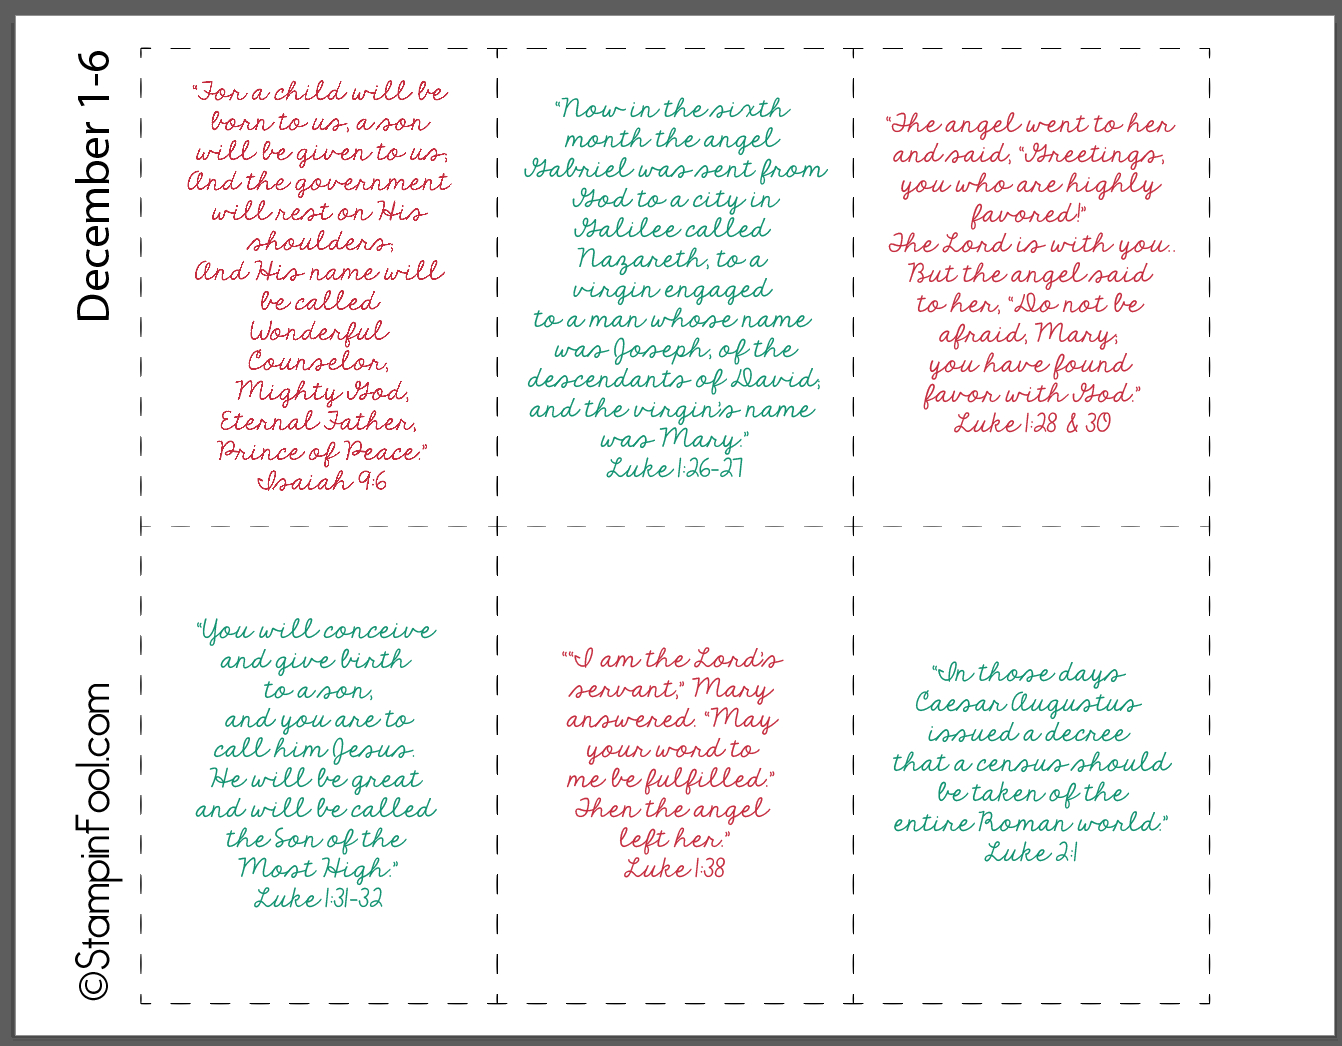 December 1-6
©StampinFool.com
“For a child will be
born to us, a son
will be given to us;
And the government
will rest on His
shoulders;
And His name will
be called
Wonderful
Counselor,
Mighty God,
Eternal Father,
Prince of Peace.”
Isaiah 9:6
“Now in the sixth
month the angel
Gabriel was sent from
God to a city in
Galilee called
Nazareth, to a
virgin engaged
to a man whose name
was Joseph, of the
descendants of David;
and the virgin’s name
was Mary.”
Luke 1:26-27
“The angel went to her
and said, “Greetings,
you who are highly
favored!”
The Lord is with you..
But the angel said
to her, “Do not be
afraid, Mary;
you have found
favor with God.”
Luke 1:28 & 30
“You will conceive
and give birth
to a son,
and you are to
call him Jesus.
He will be great
and will be called
the Son of the
Most High.”
Luke 1:31-32
““I am the Lord’s
servant,” Mary
answered. “May
your word to
me be fulfilled.”
Then the angel
left her.”
Luke 1:38
“In those days
Caesar Augustus
issued a decree
that a census should
be taken of the
entire Roman world.”
Luke 2:1